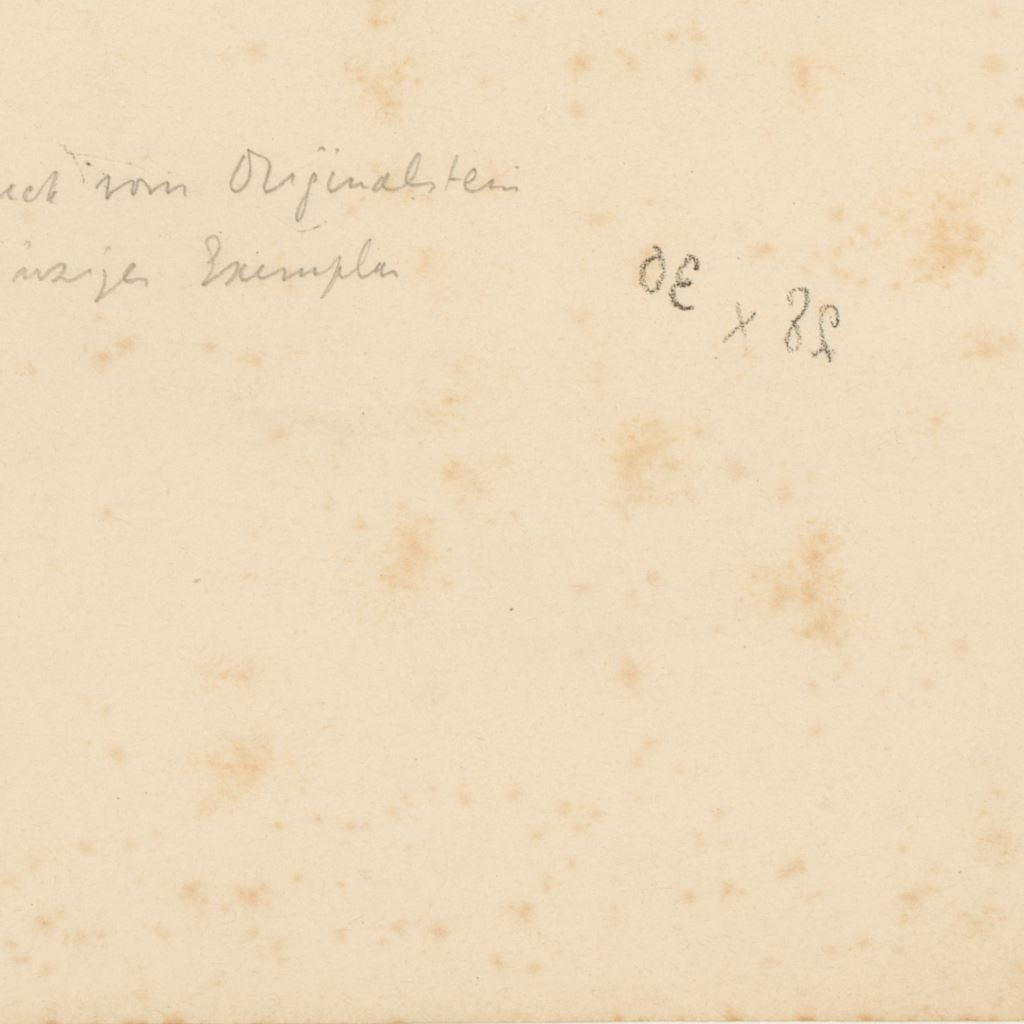 uck vom Originalstein
inziges Exemplar
28 x 30